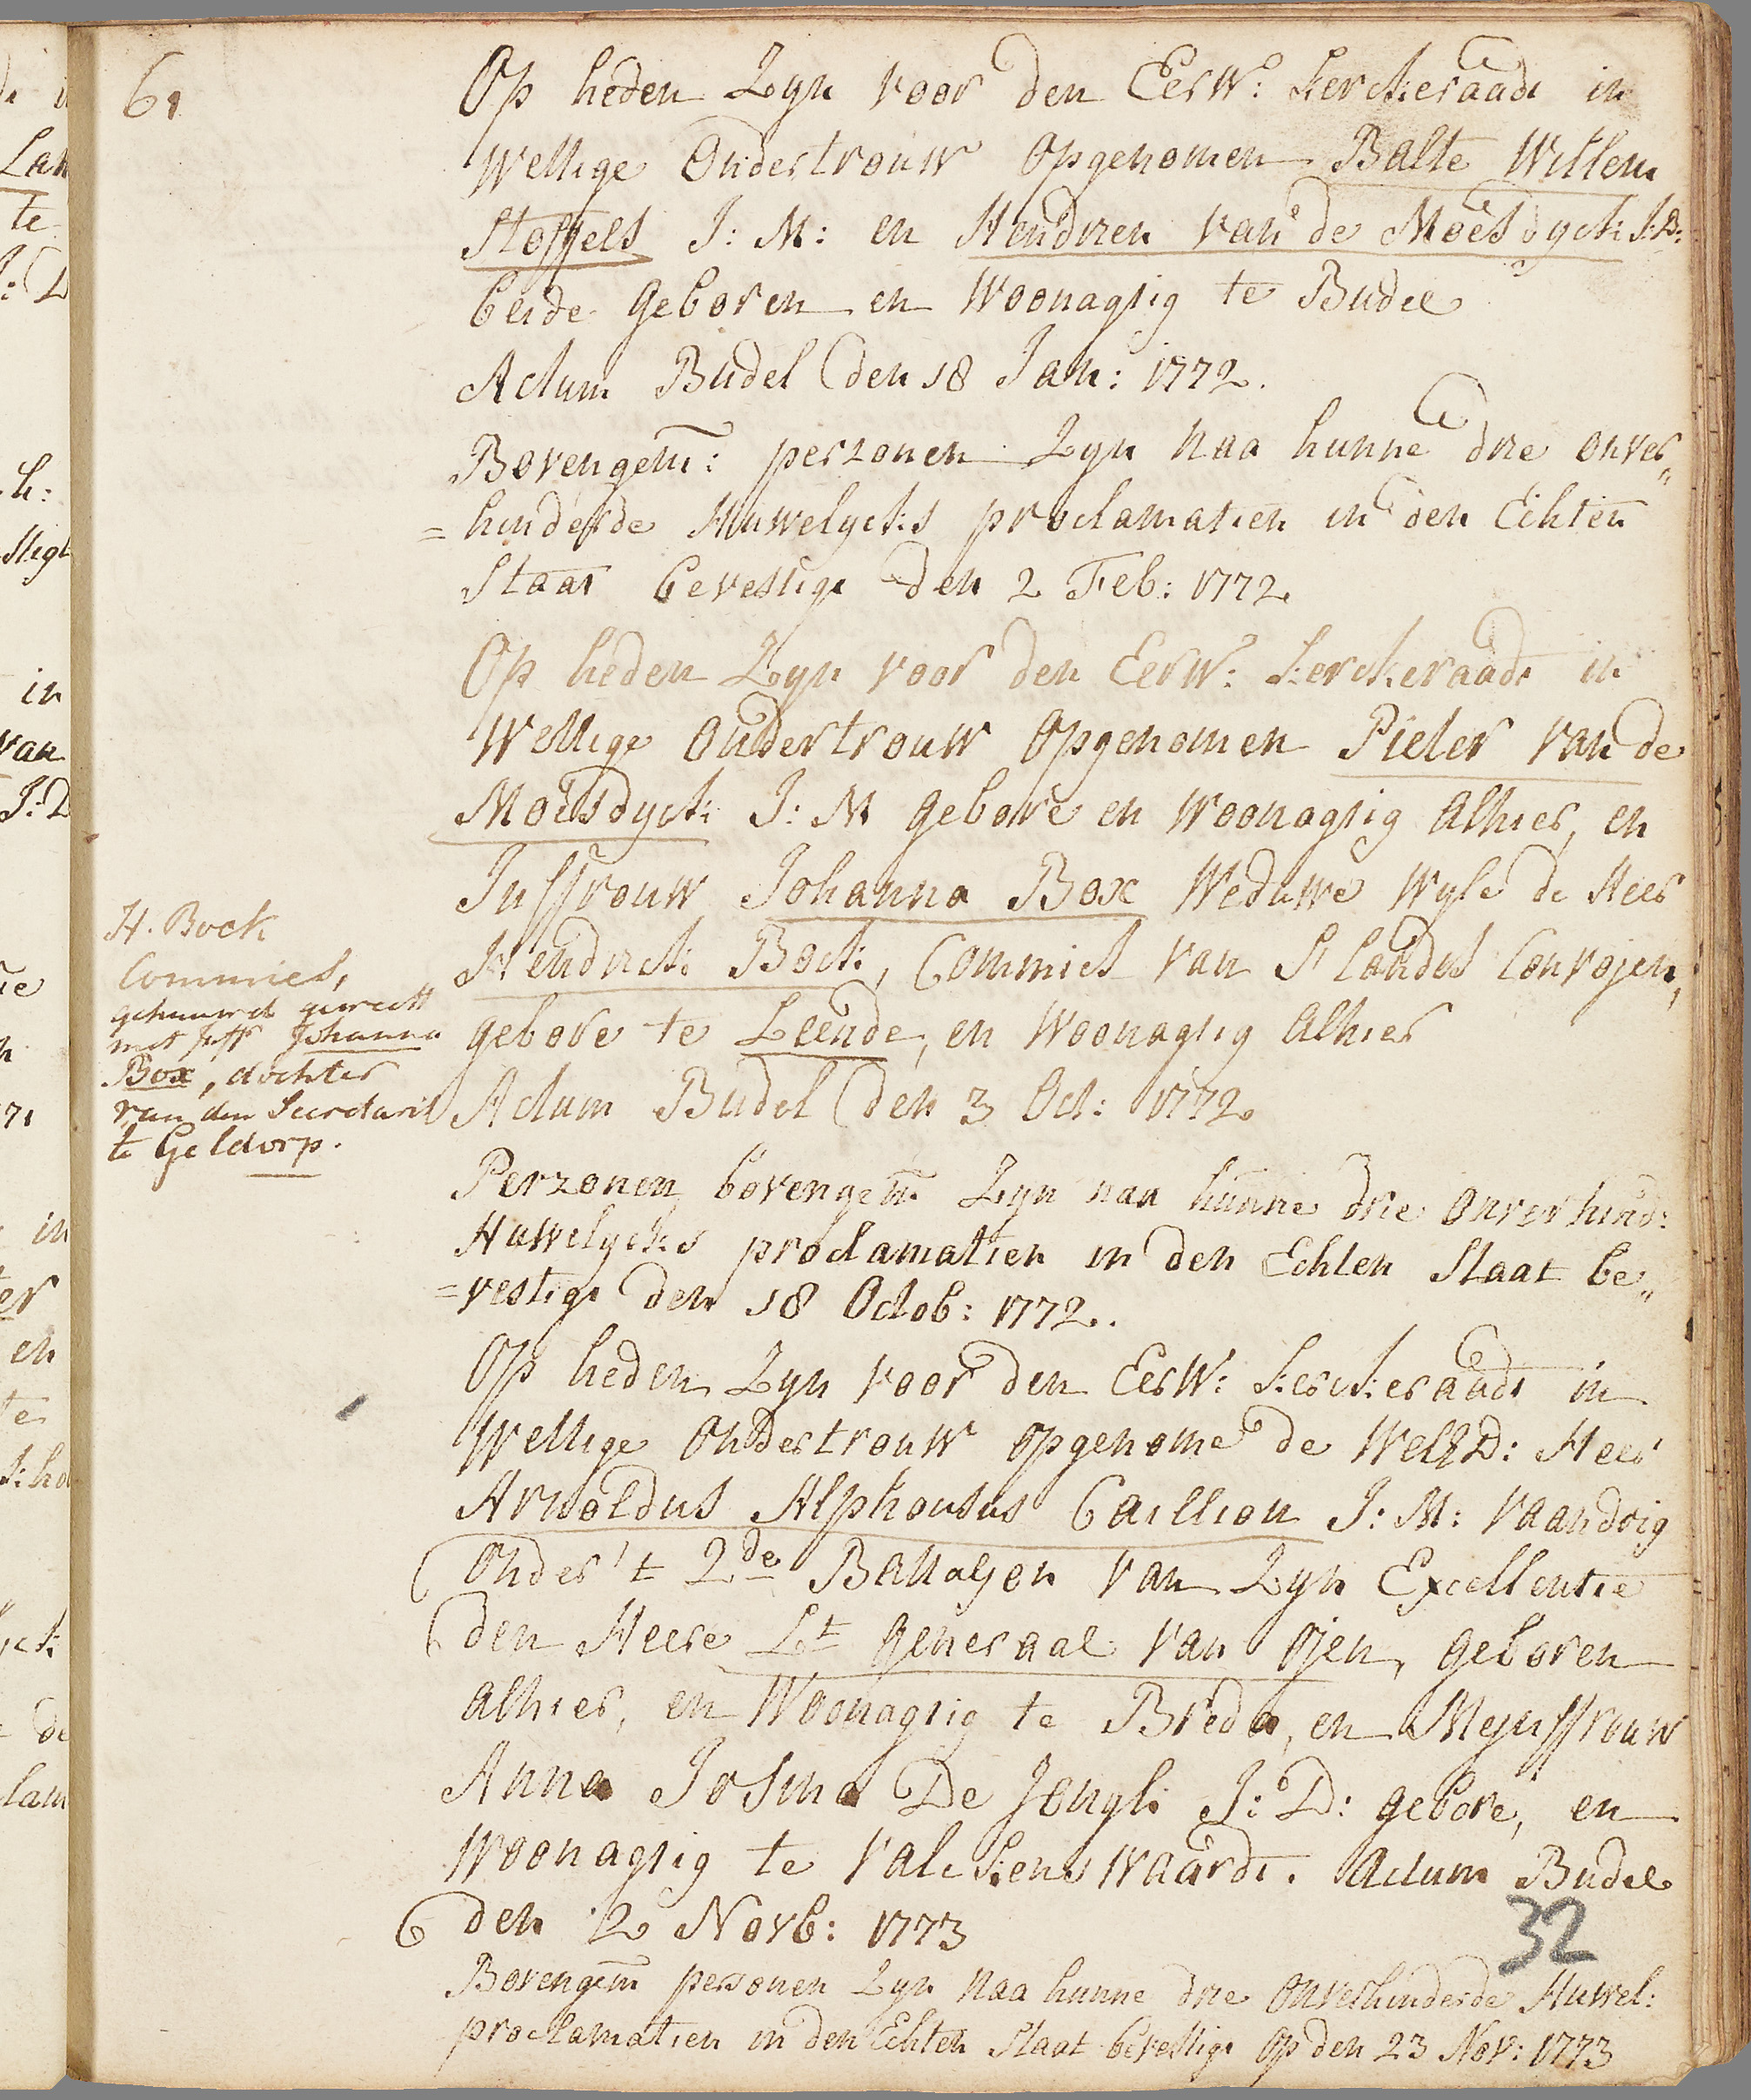 61
Op heden Zyn voor den EerW: Kerckeraadt in
Wettige Ondertrouw Opgenomen Balte Willem
Stoffels J: M: en Hendrien van de Moesdyck J:D:
beide geboren en Woonagtig te Budel
Actum Budel den 18 Jan: 1772.
Bovengem: perzonen Zyn naa hunne drie onver„
=hinderde Huwelycks proclamatien in den Echten
Staat bevestigt den 2 Feb: 1772.
Op heden Zyn voor den EerW: Kerckeraadt in
Wettige Ondertrouw Opgenomen Pieter van de
Moesdyck J: M gebore en Woonagtig Alhier, en
Juffrouw Johanna Box Weduwe Wyle de Heer
Hendrick Bock, Commies van S Landts Convojen,
gebore te Leende, en Woonagtig Alhier
Actum Budel den 3 Oct: 1772.
H. Bock
Commies,
gehuuwd geweest
met Juffr Johanna
Box, dochter
van den Secretaris
te Geldorp.
Perzonen bovengem Zyn naa hunne drie onverhind:
Huwelycks proclamatien in den Echten Staat be„
=vestigt den 18 Octob: 1772.
Op heden Zyn voor den EerW: Kerckeraadt in
Wettige Ondertrouw opgenome de WelED: Heer
Arnoldus Alphonsus Caillion J: M: Vaandrig
Onder 't 2de Battaljon van Zyn Excellentie
den Heere Lt generaal van Ojen, geboren
alhier, en Woonagtig te Breda, en Mejuffrouw
Anna Josina De Jongh J: D: gebore, en
Woonagtig te Valckenswaardt. Actum Budel
den 2 Novb: 1773
32
Bovengem personen Zyn naa hunne drie Onverhinderde Huwel:
proclamatien in den Echten Staat bevestigt op den 23 Nov: 1773